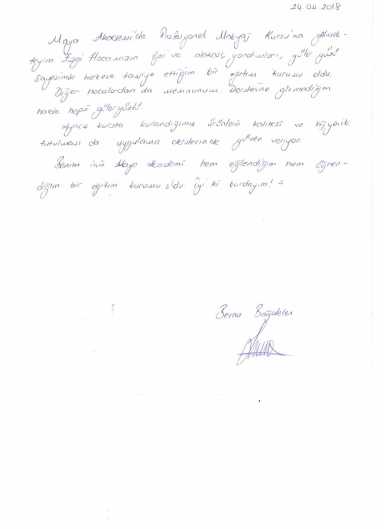 24.04.2018
Maya Akademi'de Profesyonel Makyaj Kursu'na gitmek-
teyim Ezgi Hocamızın ilgi ve alakalı yaklaşımları, güler yüzü
sayesinde herkese tavsiye ettiğim bir eğitim kurumu oldu.
Diğer hocalardan da memnunum. Derslerine girmediğim
halde hepsi güleryüzlü!
Ayrıca kursta kullandığımız ürünlerin kalitesi ve hijyenik
tutulması da uygulama derslerinde güven veriyor.
Benim için Maya Akademi hem eğlendiğim hem öğren-
diğim bir eğitim kurumu oldu İyi ki burdayım! :)
Berna